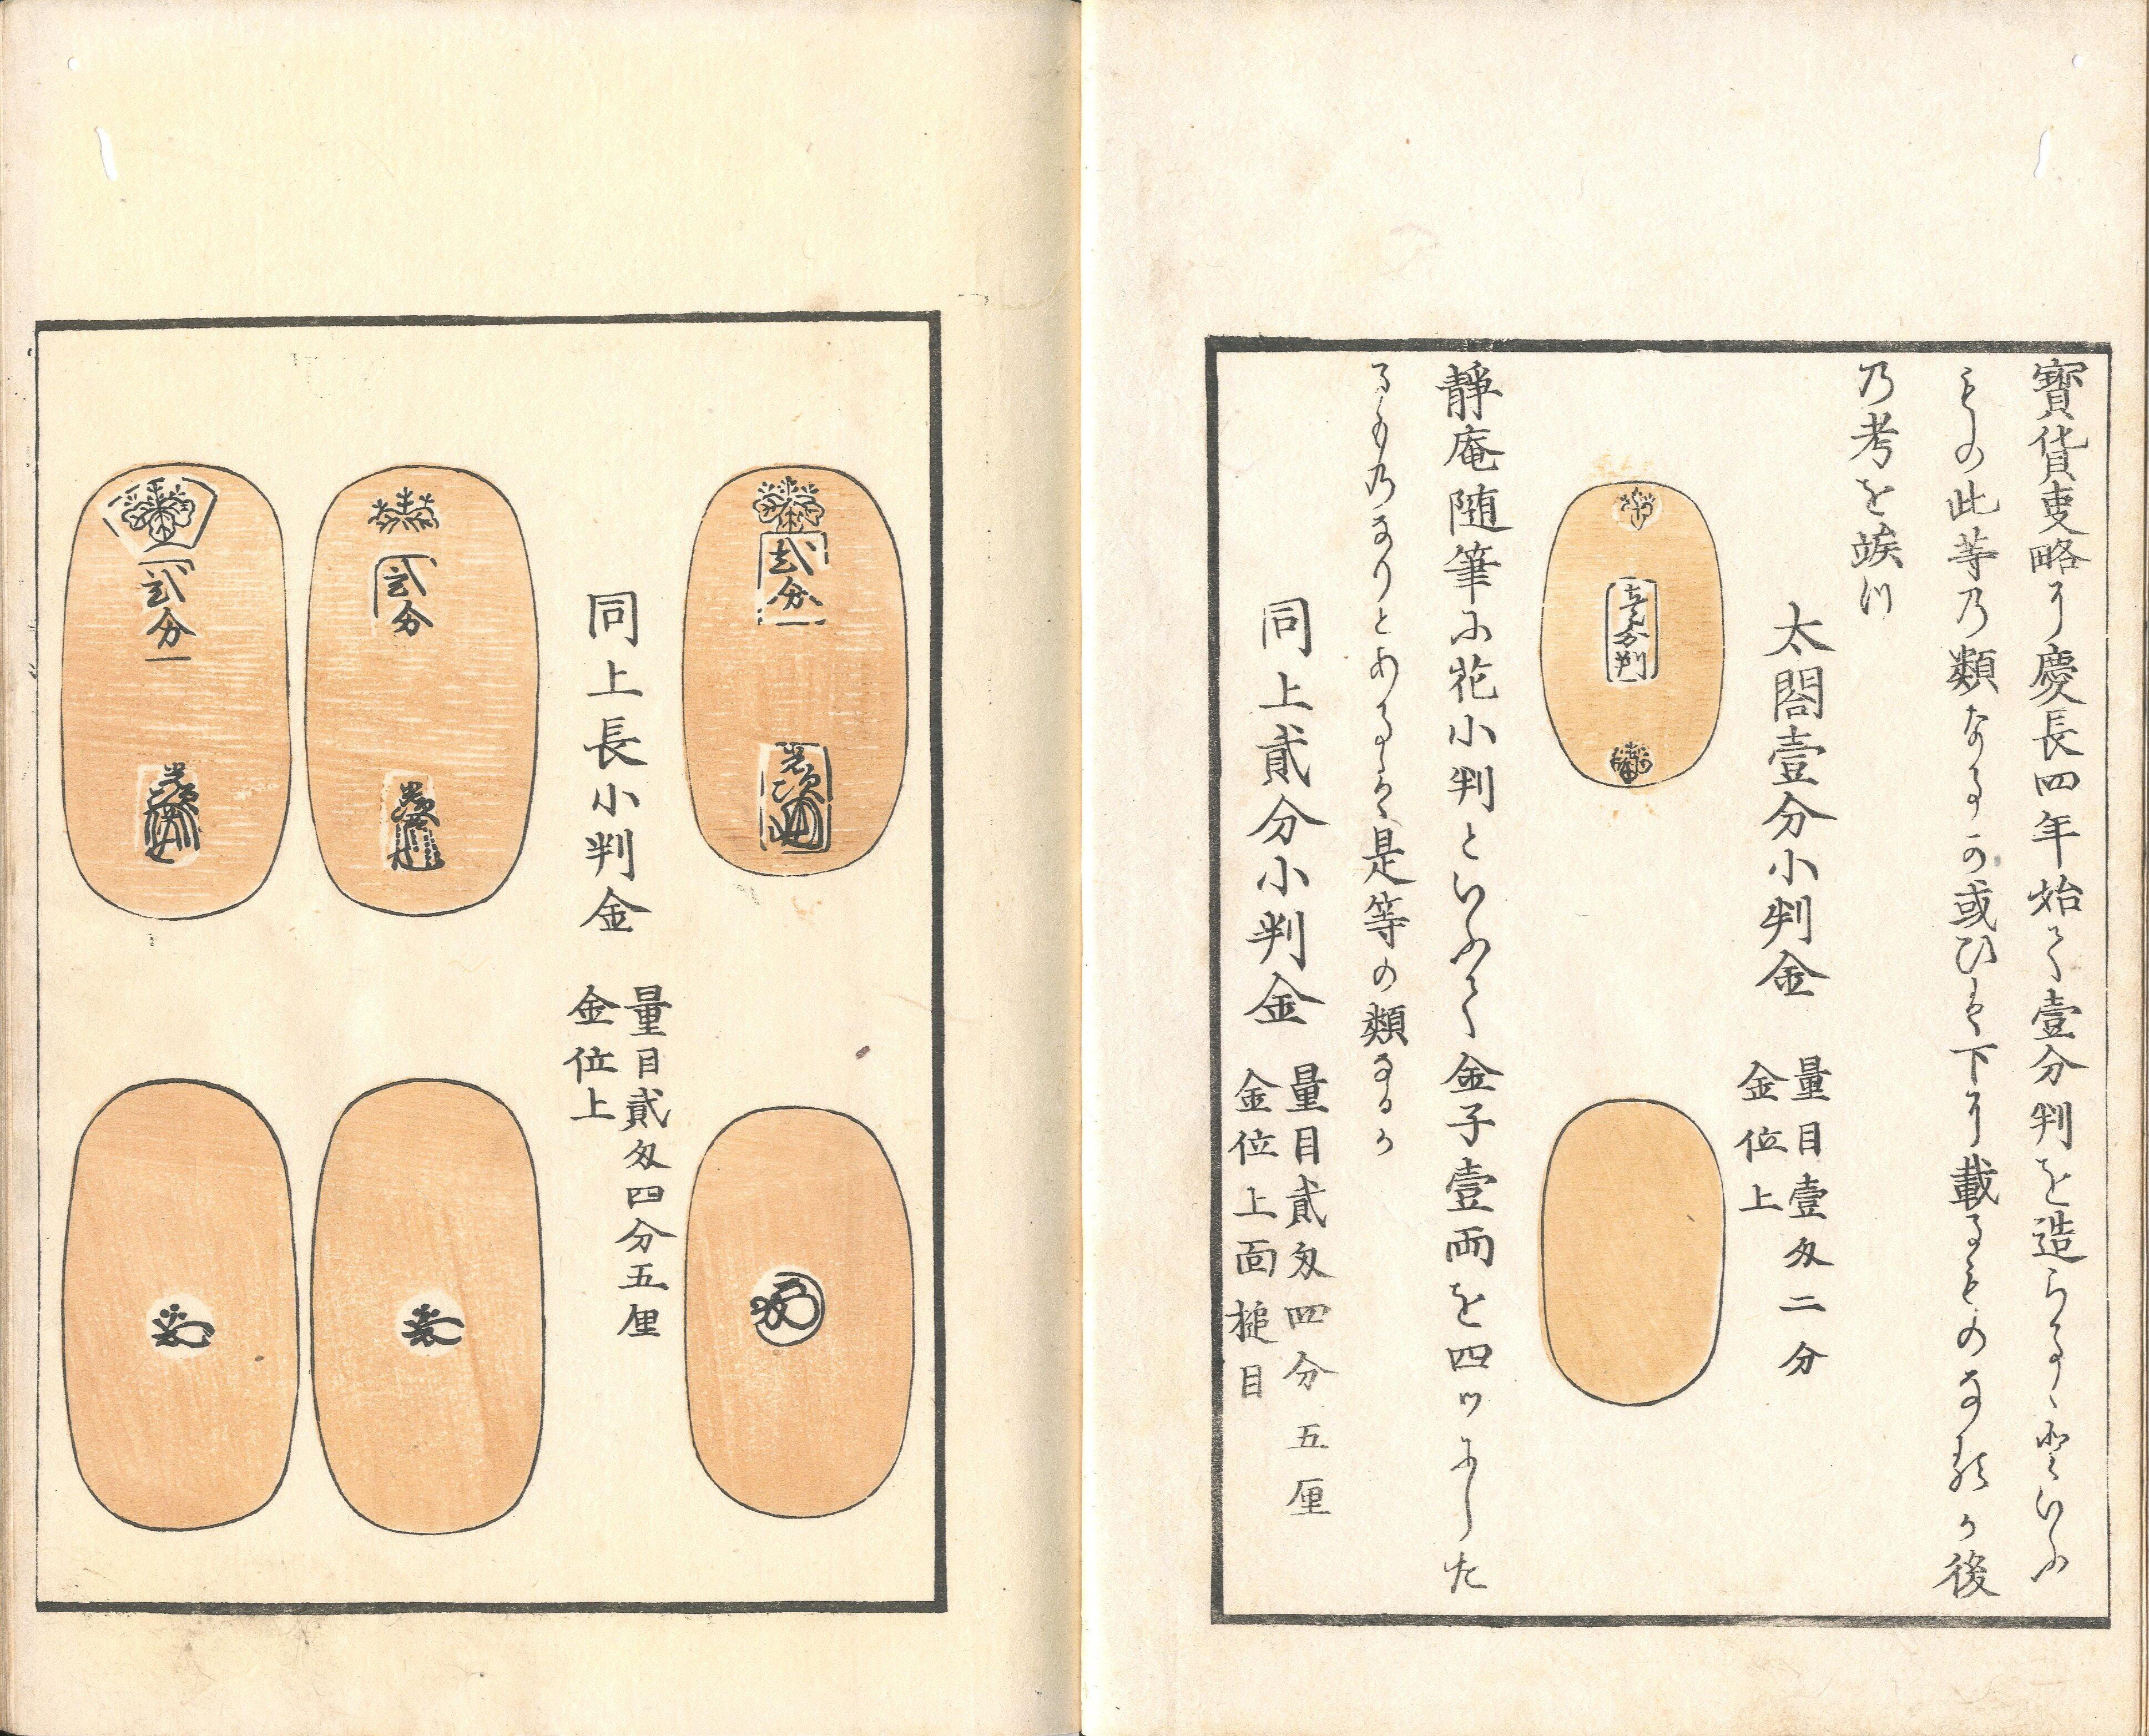 寳貨叓略に慶長四年始て壹分判を造らるゝといふ
もの此等乃類なるか或ひは下に載るものなるか後
乃考を竢つ
太閤壹分小判金
量目壹匁二分
金位上
壹分判
靜庵随筆に花小判といふて金子壹両を四ツにした
るもの乃なりとあるは是等の類なるか
同上貳分小判金
量目貳匁四分五厘
金位上面槌目
貳分
光次
同上長小判金
量目貳匁四分五厘
金位上
貳分
光次
貳分
光次